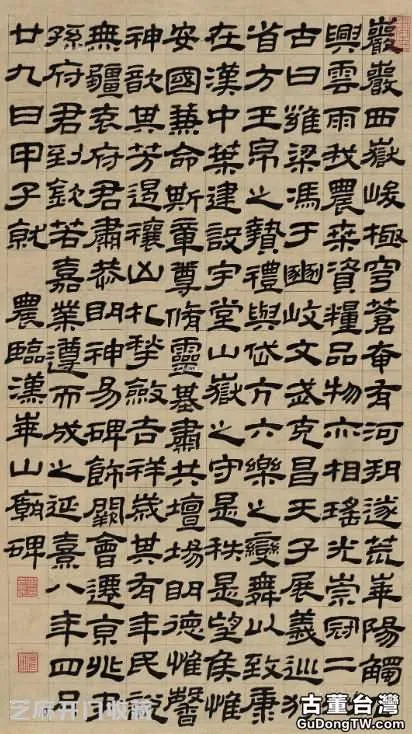 巖巖西嶽峻極穹蒼奄有河朔遂荒華陽觸
興雲雨我農桑資糧品物亦相瑤光崇冠二
古曰雍梁馮于豳岐文武克昌天子展義巡狩
省方王帛之贄禮與岱亢六樂之變舞以致康
在漢中葉建設宇堂山嶽之守是秩是望侯惟
安國兼命斯章尊脩靈基肅共壇場明德惟馨
神歆其芳遏禳凶札揫斂吉祥歲其有年民說
無疆袁府君肅恭明神易碑飾闕會遷京兆尹
孫府君到欽若嘉業遵而成之延熹八年四月
廿九日甲子就 農臨漢華山廟碑
芝麻开门收藏
古董台灣
GuDongTW.com